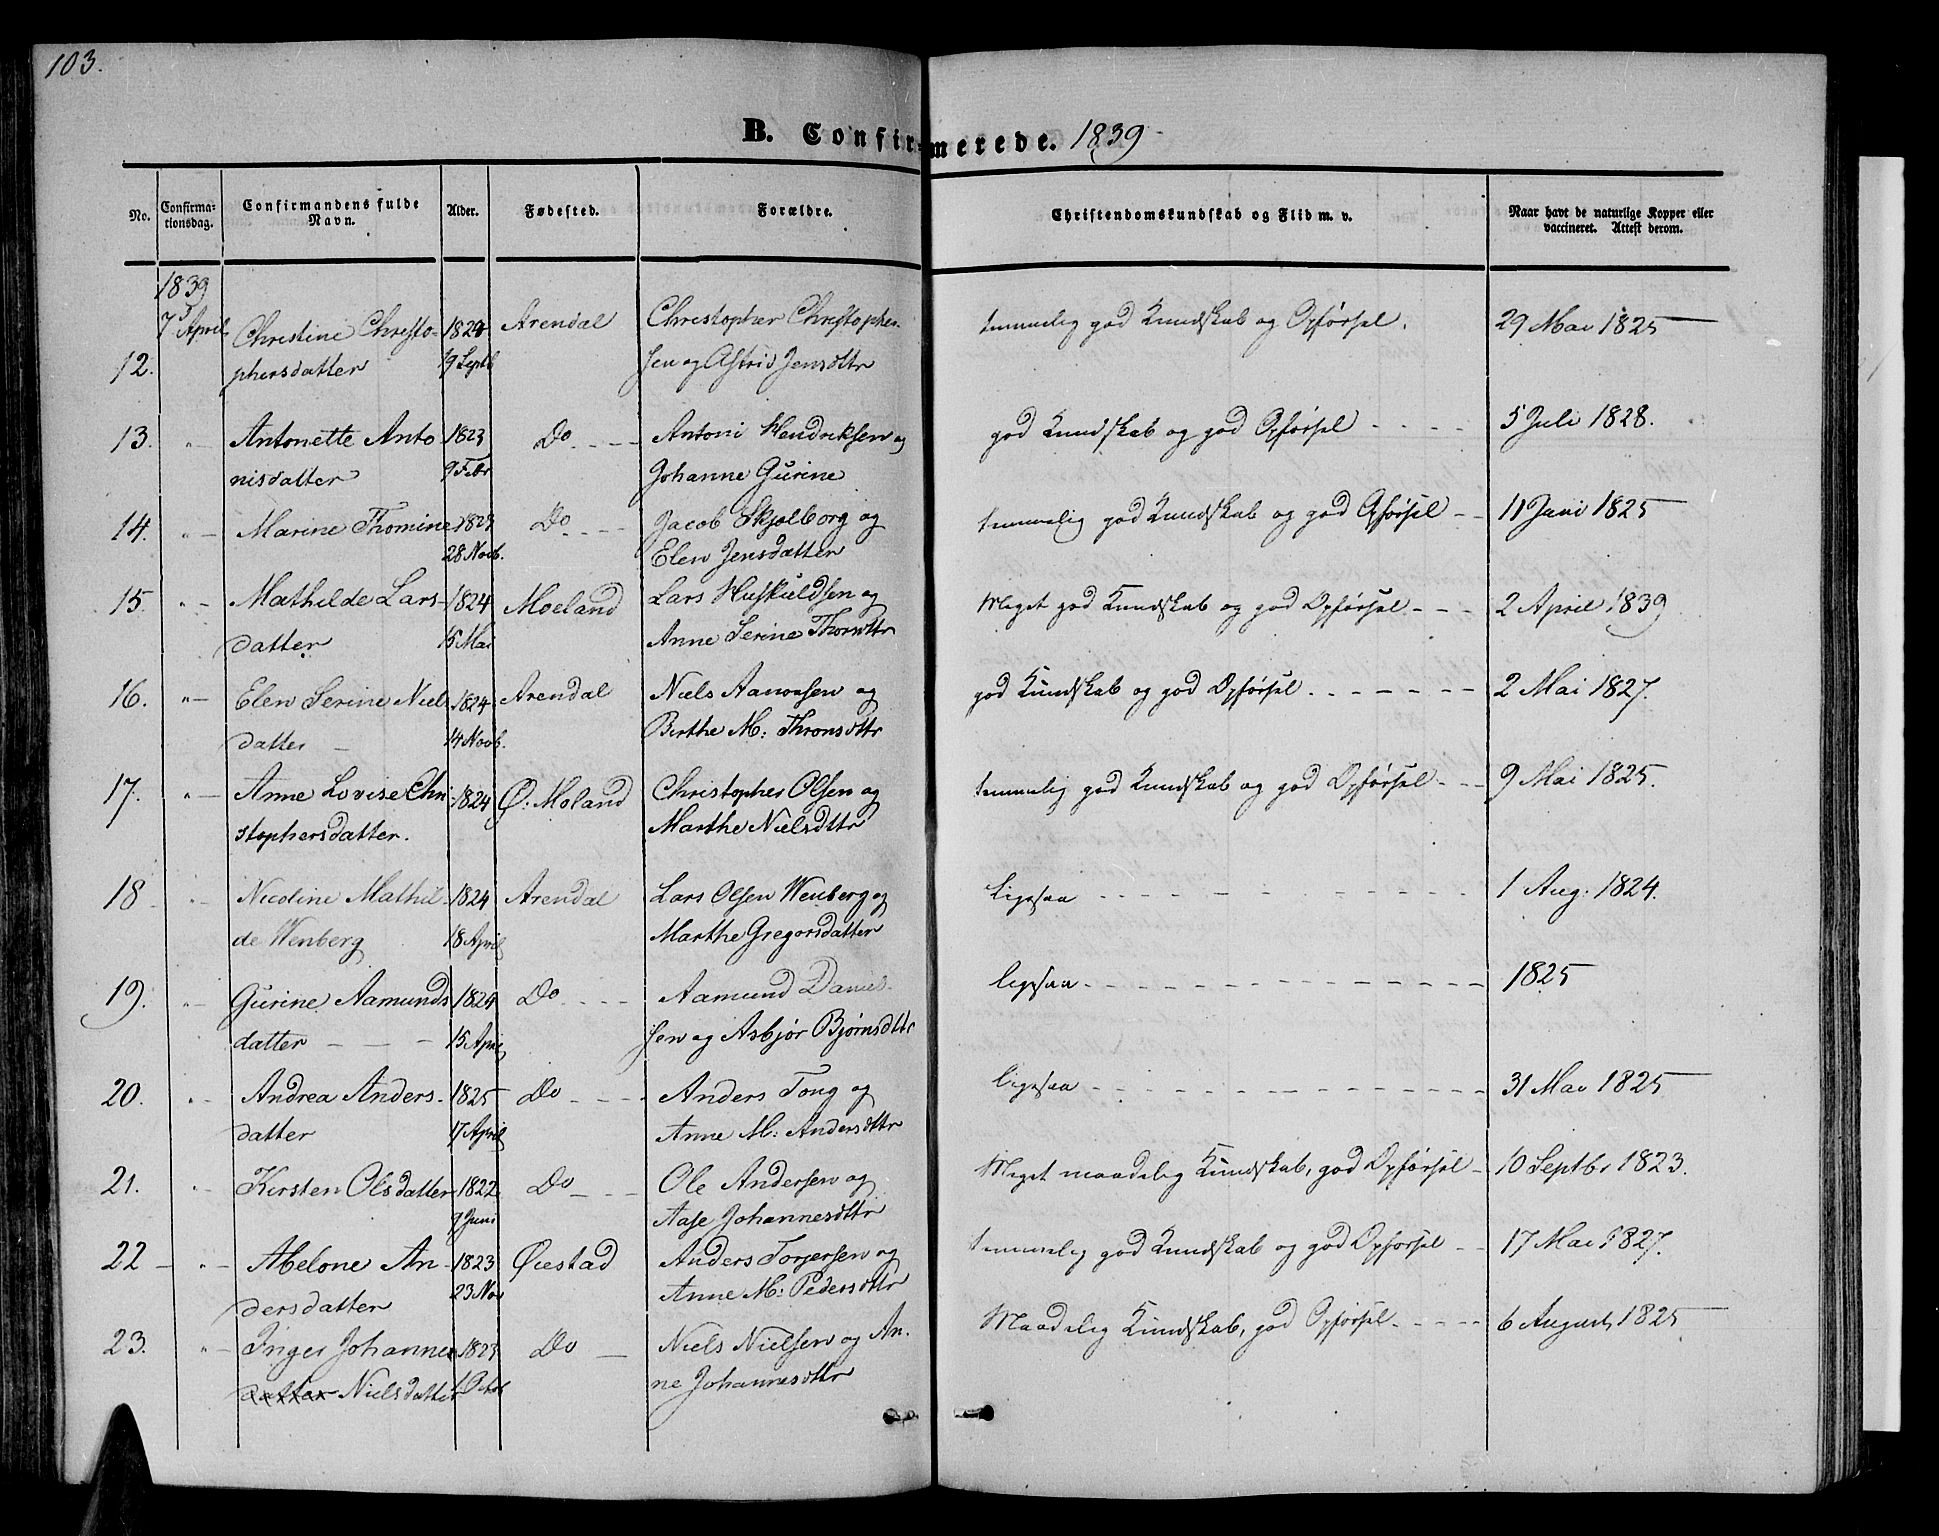 103.
B. Confirmerede. 1839
No.
Confirma-
tionsdag.
Confirmandens fulde
Navn.
Alder.
Fødested.
Forældre.
Christendomskundskab og Flid m. v.
Naar havt de naturlige Kopper eller
vaccineret. Attest derom.
1839
7 April Christine Christo- 1824 Arendal Christopher Christopher- temmelig god Kundskab og Opførsel. 29 Mai 1825
12. phersdatter 19 Septb sen og Astrid Jensdttr
13. „ Antonette Anto 1823 Do Antoni Hendriksen og god Kundskab og god Opførsel 5 Juli 1828.
nisdatter 9 Febr Johanne Gurine
14. „ Marine Thomine 1823 Do Jacob Skjølborg og temmelig god Kundskab og god Opførsel 11 Juni 1825
28 Novb. Elen Jensdatter
15. „ Mathilde Lars- 1824 Moeland Lars Huskuldsen og Meget god Kundskab og god Opførsel 2 April 1839
datter 15 Mai Anne Serine Thorsdttr
16. „ Elen Serine Niel 1824 Arendal Niels Aanonsen og god Kundskab og god Opførsel 2 Mai 1827.
datter 14 Novb. Birthe M: Thronsdttr
17. „ Anne Lovise Chri- 1824 Ø. Moland Christopher Olsen og temmelig god Kundskab og god Opførsel 9 Mai 1825.
stophersdatter. Marthe Nielsdttr
18 „ Nicoline Mathil- 1824 Arendal Lars Olsen Wenberg og Ligesaa 1 Aug: 1824.
de Wenberg 18 April Marthe Gregorsdatter
19. „ Gurine Aamunds 1824 Do Aamund Daniel- ligesaa 1825
datter 15 April sen og Asbjør Bjørnsdttr
20. „ Andrea Anders- 1825 Do Anders Tong og ligesaa 31 Mai 1825
datter 17 April Anne M: Andersdttr
21. „ Kirsten Olsdatter 1822 Do Ole Andersen og Meget maadelig Kundskab, god Opførsel 10 Septbr 1823.
9 Juni Aase Johannesdttr
22 „ Abelone An- 1823 Øiestad Anders Torjersen og temmelig god Kundskab og god Opførsel 17 Mai 1827.
dersdatter 23 Nov Anne M: Pedersdttr
23. „ Inger Johanne 1823 Do Niels Nielsen og An- Maadelig Kundskab, god Opførsel 6 August 1825
datter Nielsdatter 1 Octbr ne Johannesdttr